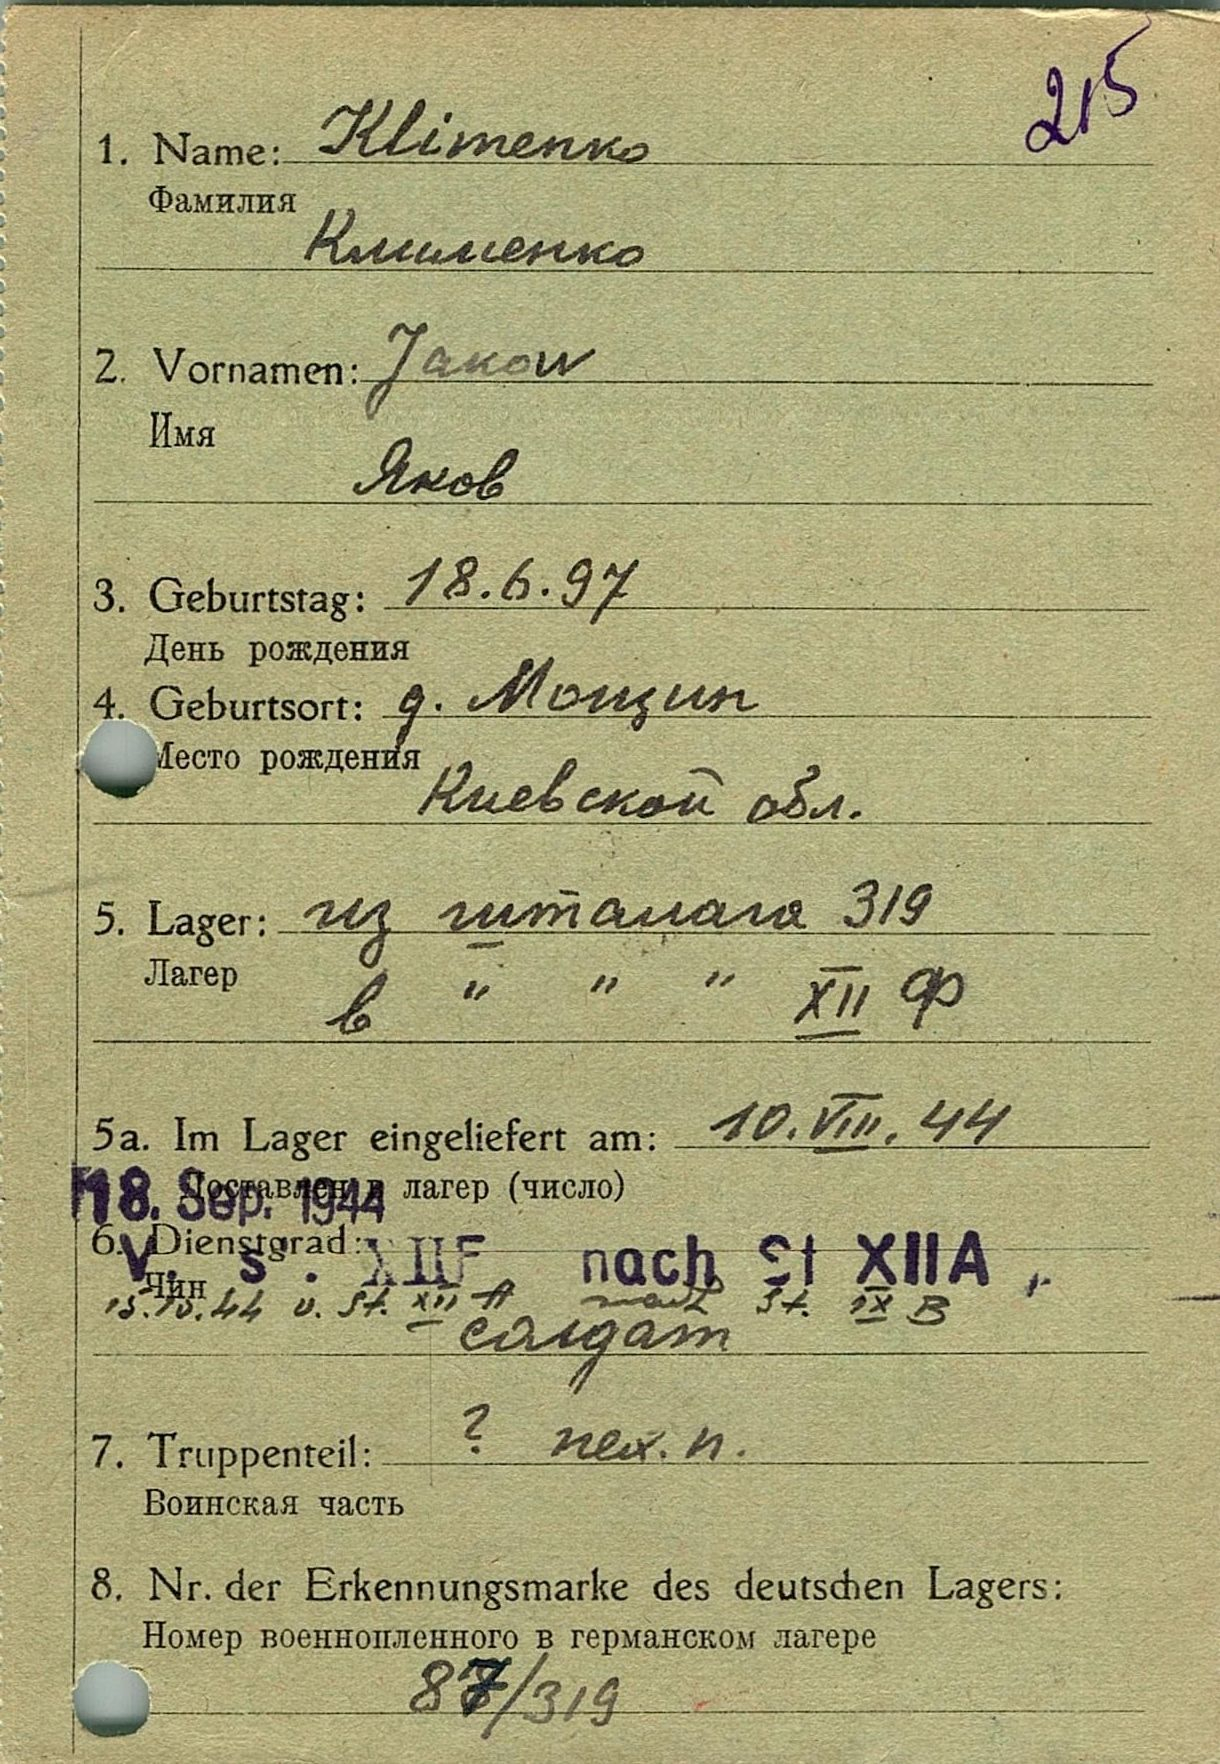 215
1. Name: Klimenko
Фамилия
Клименко
2. Vornamen: Jakow
Имя
Яков
3. Geburtstag: 18.6.97
День рождения
4. Geburtsort: д. Мощин
Место рождения
Киевской обл.
5. Lager: из шталага 319
Лагер
в " " " XII Ф
5a. Im Lager eingeliefert am: 10.VIII.44
Доставлен в лагер (число)
18. Sep. 1944
6. Dienstgrad:
V. s. XIIF nach St XIIA
Чин
13.10.44 v. St. XII A nach St. IX B
солдат
7. Truppenteil: ? пех. п.
Воинская часть
8. Nr. der Erkennungsmarke des deutschen Lagers:
Номер военнопленного в германском лагере
87/319